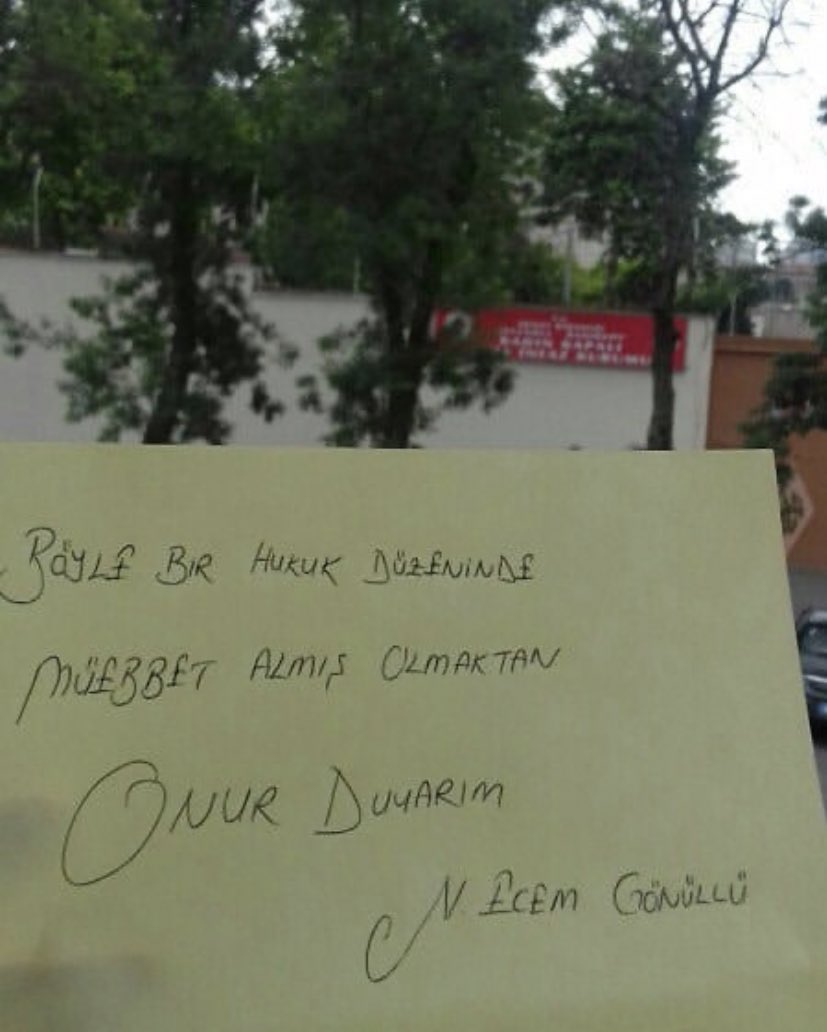 T.C.
KADIN KAPALI
İNFAZ KURUMU
BÖYLE BİR HUKUK DÜZENİNDE
MÜEBBET ALMIŞ OLMAKTAN
ONUR DUYARIM
N. ECEM GÖNÜLLÜ